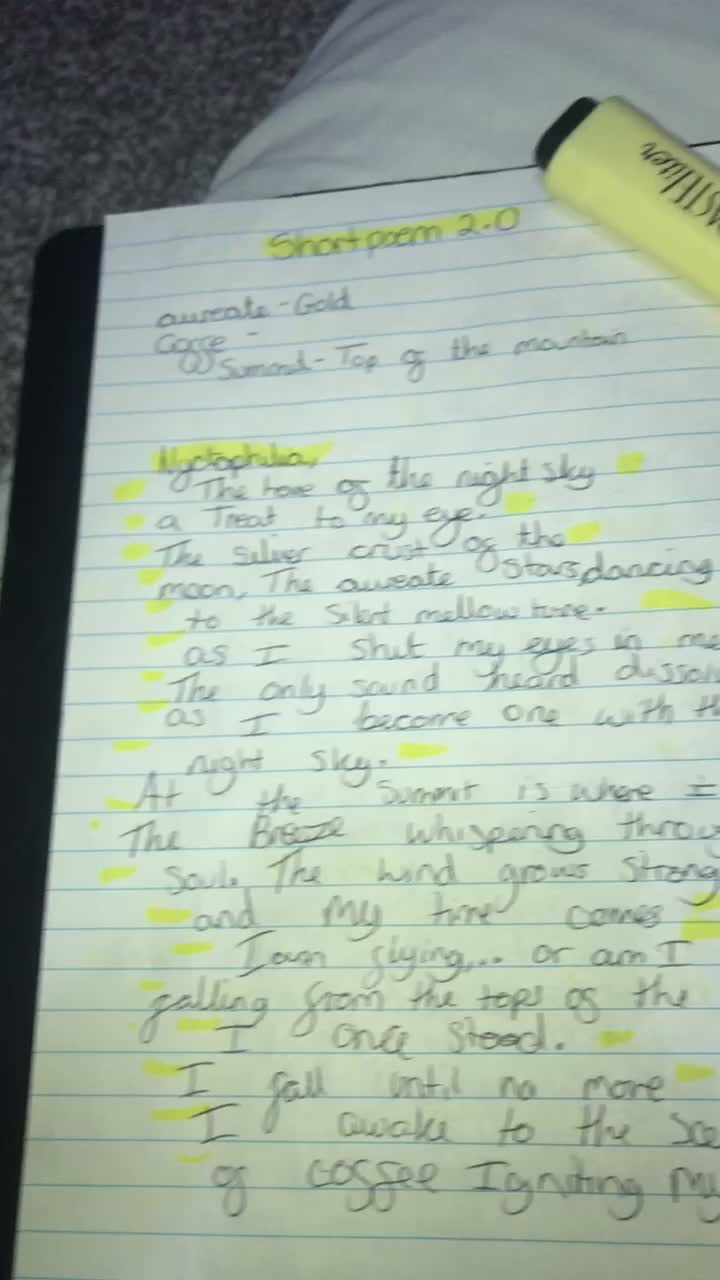 Short poem 2.0
aureate - Gold
Summond - Top of the mountain
Nyctophilia,
The love of the night sky
a Treat to my eye.
The silver crust of the
moon, The aureate Stars dancing
to the silent mellow tune.
as I shut my eyes in
The only sound heard
as I become one with
night sky.
At the Summit is where I
The Breeze whispering
Soul. The wind grows
and My time comes
I am flying,... or am I
falling from the tops of the
I once stood.
I fall until no more
I awake to the
of coffee Igniting My